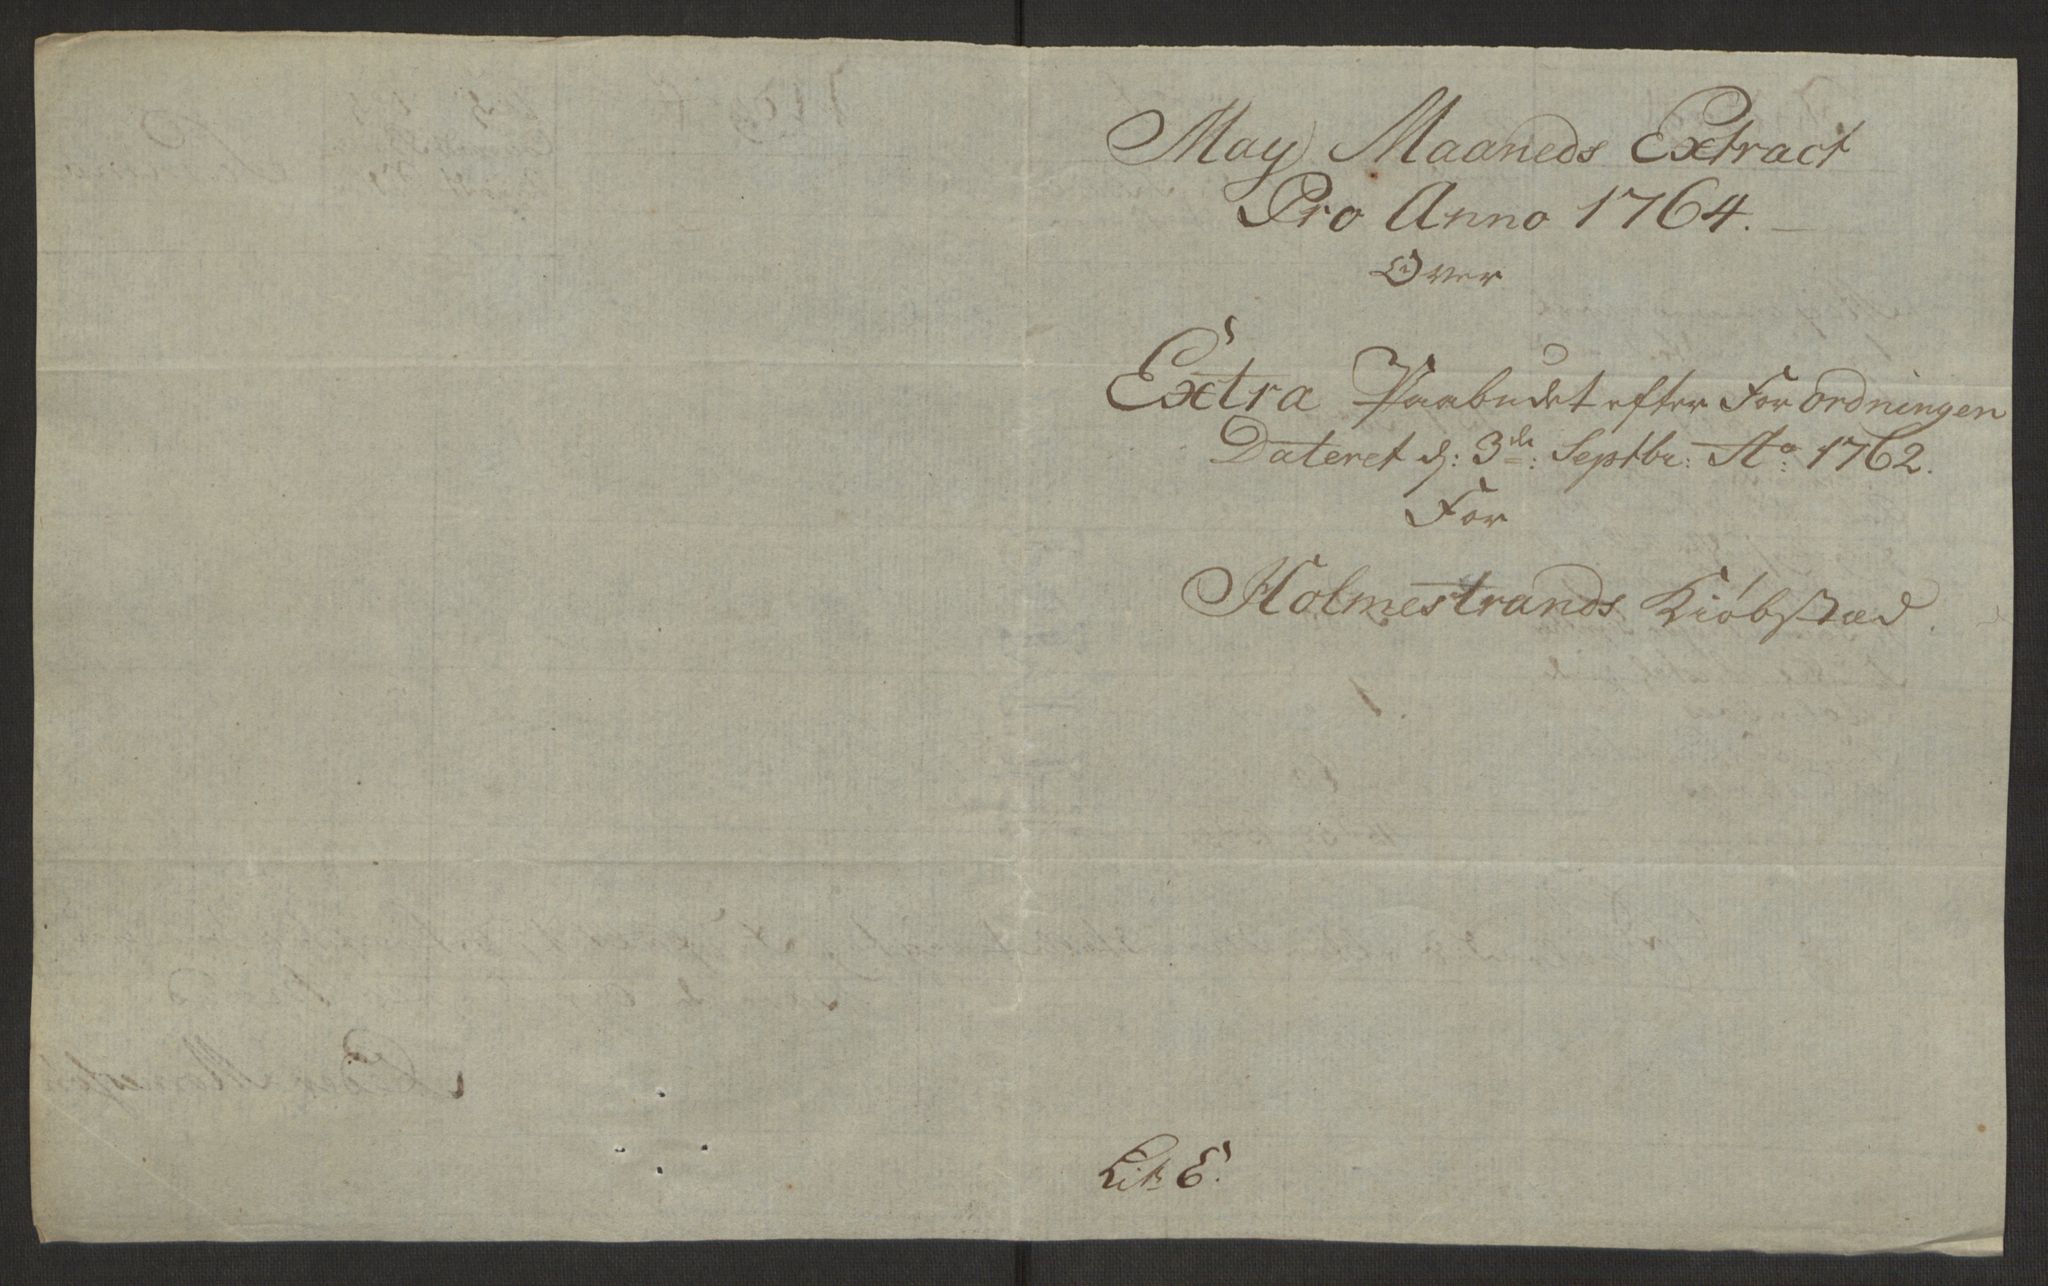 May Maaneds Extract
Pro Anno 1764.
Over
Extra Paabudet efter Forordningen
Dateret d: 3de: Septbr: Ao: 1762.
For
Holmestrands Kiøbstæd.
Lit. E.